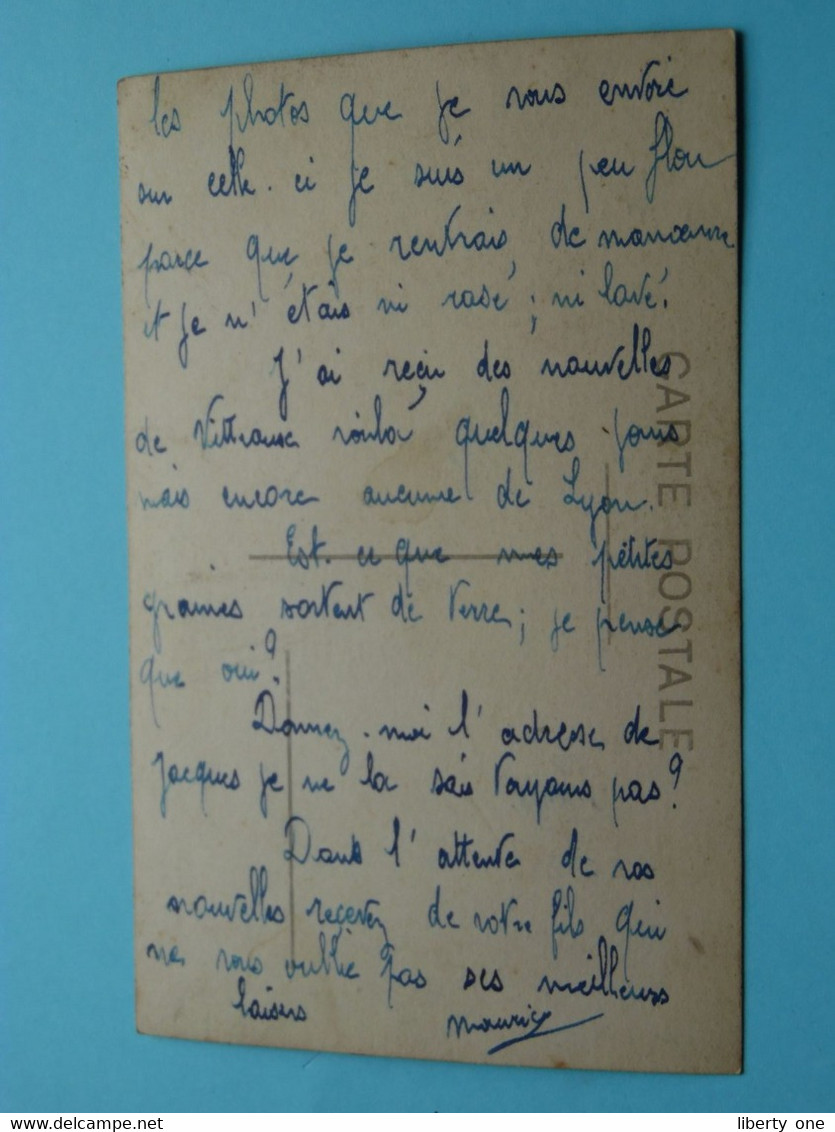 les photos que je vous envoie
sur celle-ci je suis un peu flou
parce que je rentrais de manoeuvre
et je n'étais ni rasé; ni lavé.
J'ai reçu des nouvelles
de Vitteaux voilà quelques jours
mais encore aucune de Lyon.
Est-ce que mes pétites
graines sortent de terre; je pense
que oui?
Donnez-moi l'adresse de
Jacques je ne la sais toujours pas?
Dans l'attente de vos
nouvelles reçevez de votre fils qui
ne vous oublie pas ses meilleurs
baisers Maurice
CARTE POSTALE
liberty one